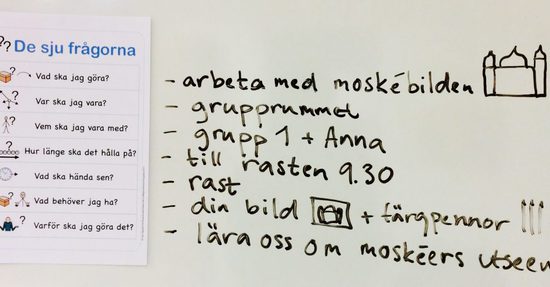 ?? De sju frågorna
Vad ska jag göra?
Var ska jag vara?
Vem ska jag vara med?
Hur länge ska det hålla på?
Vad ska hända sen?
Vad behöver jag ha?
Varför ska jag göra det?
- arbeta med moskébilden
- grupprummet
- grupp 1 + Anna
- till rasten 9.30
- rast
- din bild + färgpennor
- lära oss om moskéers utseen